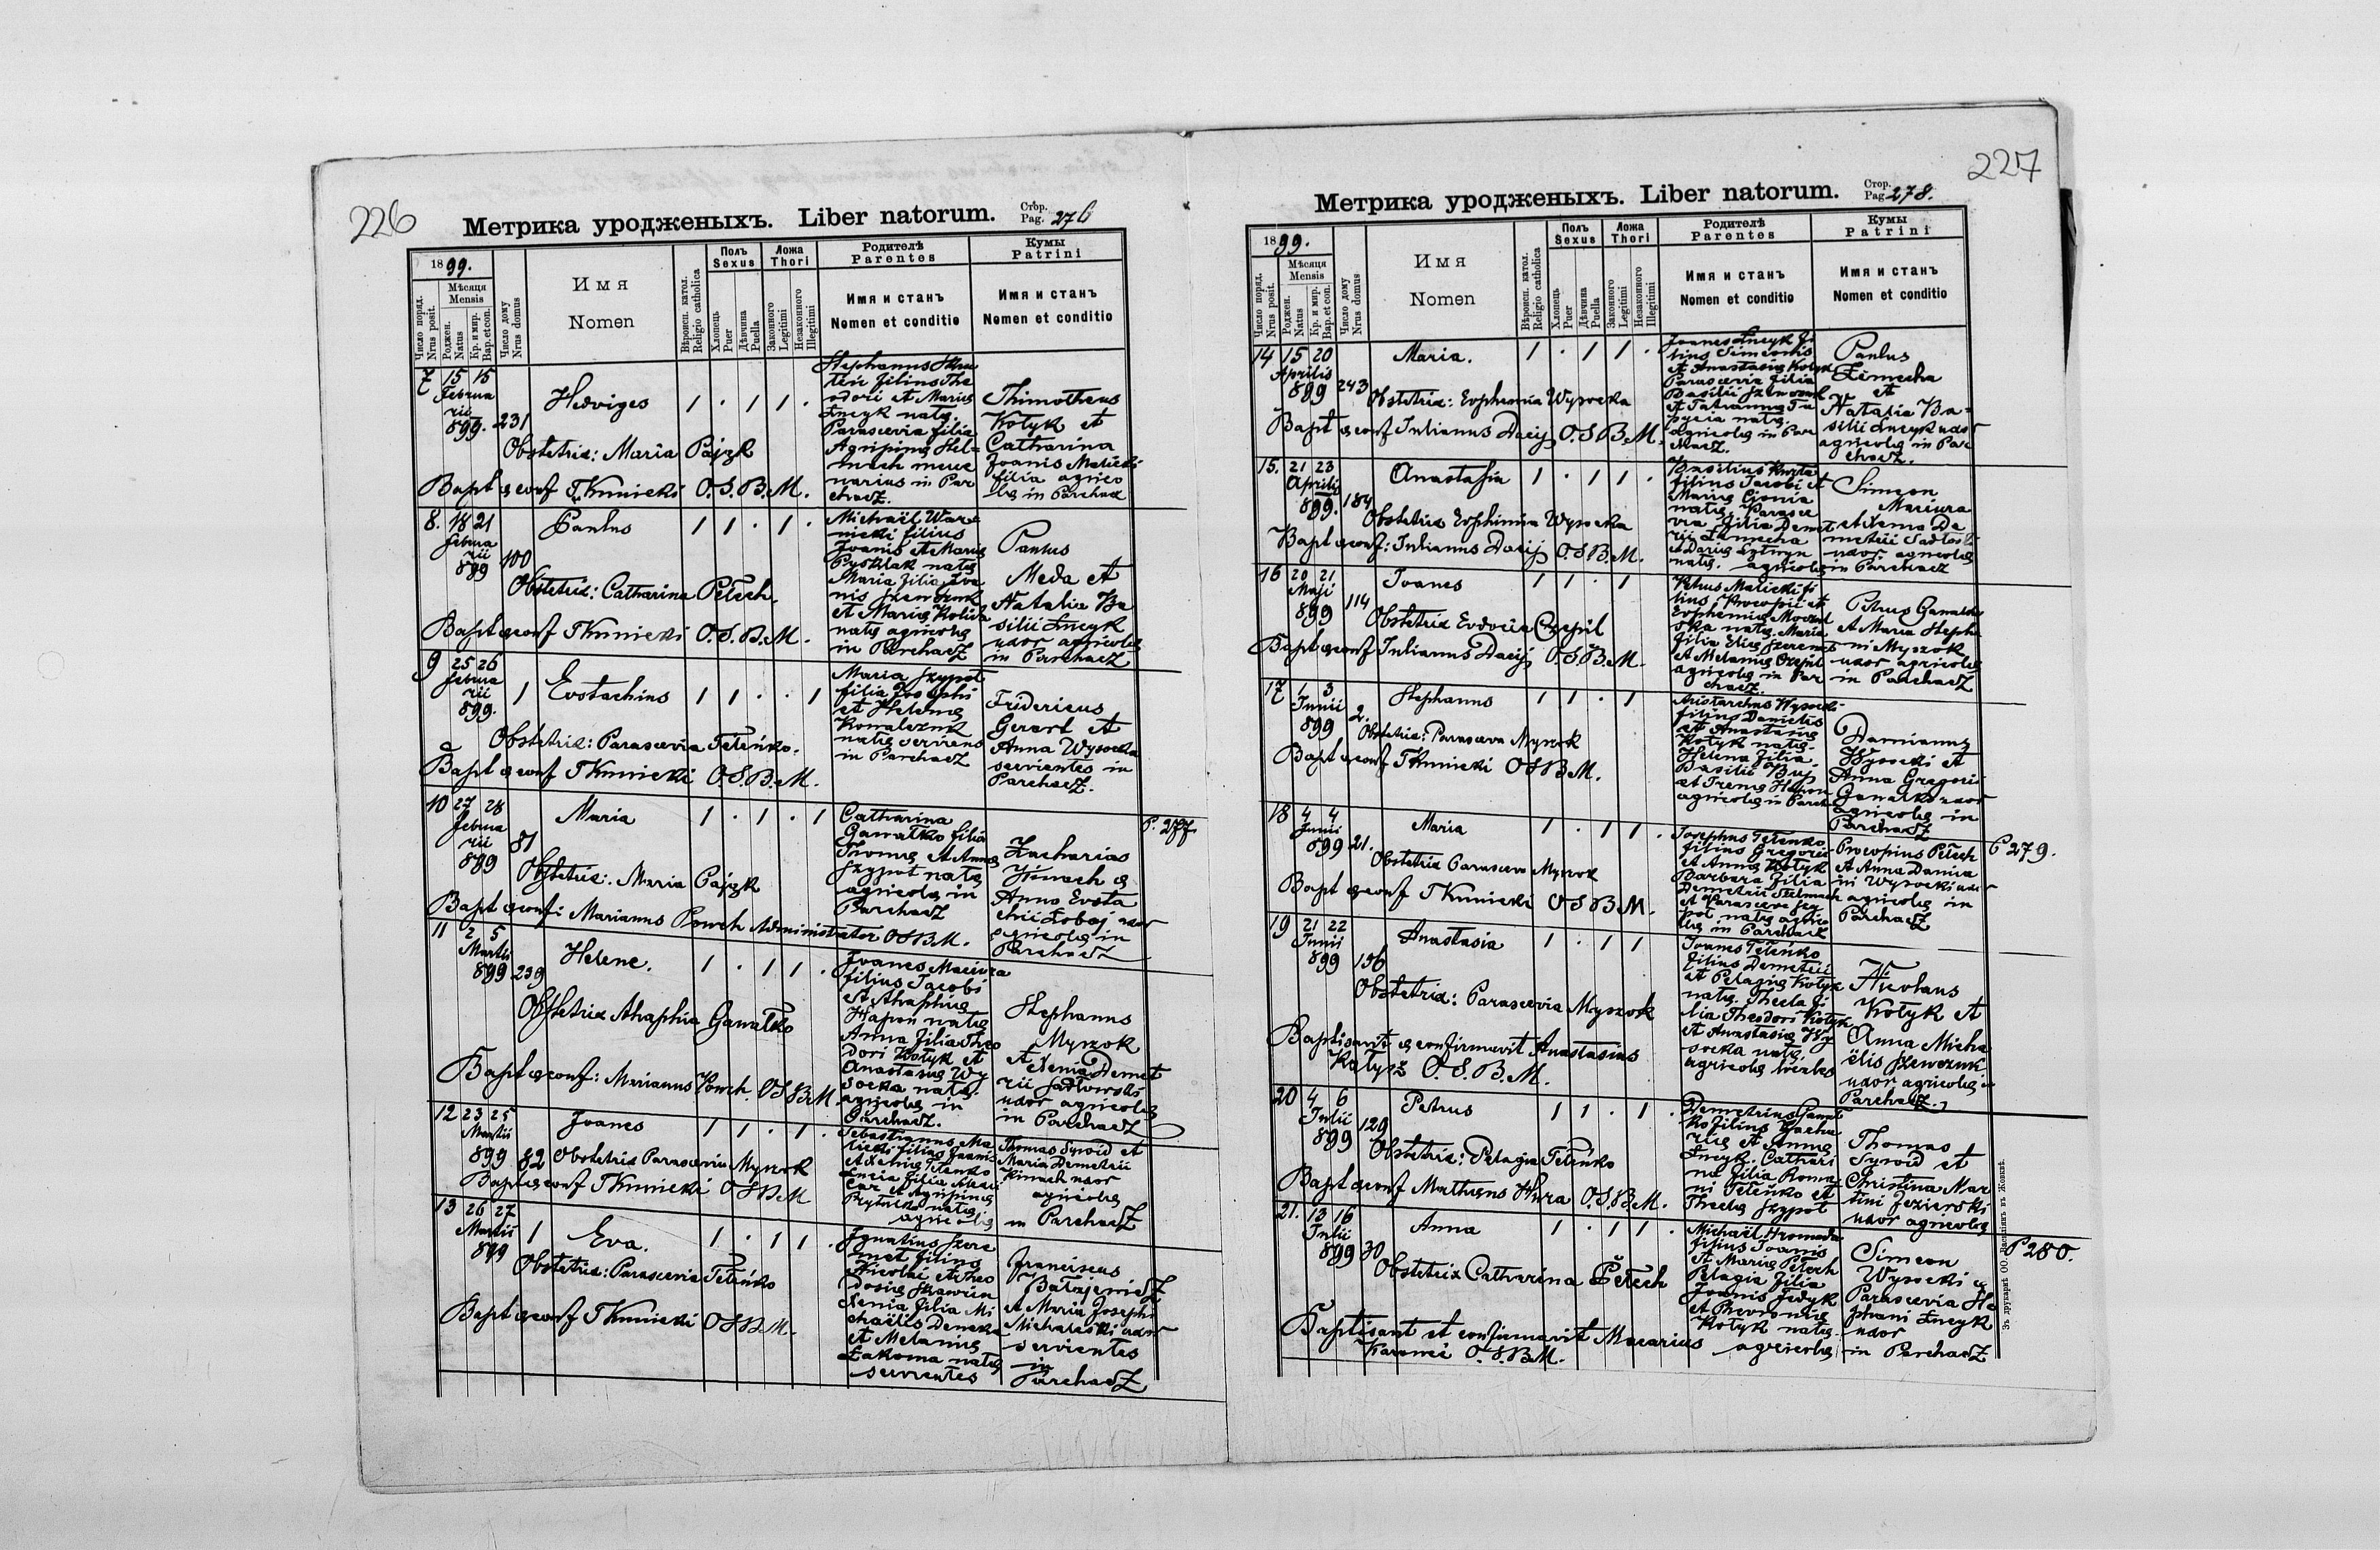 226
Метрика уродженыхъ. Liber natorum.
Стор.
Pag. 276
1899.
Число поряд.
Nrus posit.
Мѣсяця
Mensis
Роджен.
Natus
Кр. и мир.
Bap. et con.
Число дому
Nrus domus
Имя
Nomen
Вѣроисп. катол.
Religio catholica
Полъ
Sexus
Хлопець
Puer
Дѣвчина
Puella
Ложа
Thori
Законного
Legitimi
Незаконного
Illegitimi
Родителѣ
Parentes
Имя и станъ
Nomen et conditio
Кумы
Patrini
Имя и станъ
Nomen et conditio
7 15 15
Februa
rii
899. 231
Hedviges 1 . 1 1 .
Obstetrix: Maria Pajzk
Bapt & conf T Kunicki O. S. B. M.
Stephanus
filius The
odori et Mariæ
Łucyk natæ.
Parascevia filia
Agripinæ Hel=
mach merce
narius in Par
chacz.
Thimotheus
Kotyk et
Catharina
Joanis Malicki
filia agrico
læ in Parchacz
8. 18 21
Februa
rii
899 100
Paulus 1 1 . 1 .
Obstetrix: Catharina Petech.
Bapt & conf T Kunicki O. S. B. M.
Michaël War=
nicki filius
Joanis et Mariæ
Pysklak natæ
Maria filia Joa
nis Szewczuk
et Mariæ
natæ agricolæ
in Parchacz
Paulus
Meda et
Natalia Ba
silii Łucyk
uxor agricolæ
in Parchacz
9 25 26
Februa
rii
899. 1
Eustachius 1 1 . . 1
Obstetrix: Parascevia Teteńko.
Bapt & conf T Kunicki O. S. B. M.
Maria Szypot
filia Josephi
et Helenæ
Kowalczuk
natæ serviens
in Parchacz
Fridericus
Gerert et
Anna Wysocka
servientes in
Parchacz.
10 27 28
Februa
rii
899 81
Maria 1 . 1 . 1
Obstetrix: Maria Pajzk
Bapt & conf: Marianus Powch Administrator O S B M.
Catharina
Gawałko filia
Thomæ et Annæ
Szypot natæ
agricolæ in
Parchacz
Zacharias
Kimach &
Anna Eusta
chii Łobaj uxor
agricolæ in
Parchacz
P. 277.
11 2 5
Martii
899 239
Helene. 1 . 1 1 .
Obstetrix Ahaphia Gawałko
Bapt & conf: Marianus Powch. O S B M.
Joanes Maciura
filius Jacobi
et Ahaphiæ
Hapon natæ
Anna filia Theo
dori Kotyk et
Anastasiæ Wy
socka natæ.
agricolæ in
Parchacz.
Stephanus
Myszok
et Xenia Demet
rii Sadłowski
uxor agricolæ
in Parchacz
12 23 25
Martii
899 82
Joanes 1 1 . 1 .
Obstetrix Parascevia Myszok
Bapt & conf T Kunicki O S B M
Sebastianus Ma
licki filius Joanis
et Xeniæ Tetenko
Lucia filia
et Agripinæ
natæ
agricolæ
Thomas Syroid et
Maria Demetrii
Kimach uxor
agricolæ
in Parchacz
13 26 27
Martii
899 1
Eva. 1 . 1 1 .
Obstetrix: Parascevia Teteńko
Bapt & conf T Kunicki O S B M.
Ignatius Szere
met filius
Nicolai et Theo
dosiæ
Xenia filia Mi
chaëlis Deneka
et Melaniæ
Łakoma natæ
servientes
Franciscus
Batajewicz
et Maria Josephi
Michalski uxor
servientes
in
Parchacz
227
Метрика уродженыхъ. Liber natorum.
Стор.
Pag. 278.
1899.
Число поряд.
Nrus posit.
Мѣсяця
Mensis
Роджен.
Natus
Кр. и мир.
Bap. et con.
Число дому
Nrus domus
Имя
Nomen
Вѣроисп. катол.
Religio catholica
Полъ
Sexus
Хлопець
Puer
Дѣвчина
Puella
Ложа
Thori
Законного
Legitimi
Незаконного
Illegitimi
Родителѣ
Parentes
Имя и станъ
Nomen et conditio
Кумы
Patrini
Имя и станъ
Nomen et conditio
14 15 20
Aprilis
899 243
Maria. 1 . 1 1 .
Obstetrix: Euphemia Wysocka
Bapt & conf Julianus Dacij O. S. B. M.
Joanes Łucyk fi
lius Simeonis
et Anastasiæ Kotyk
Parascevia filia
Basilii Szewczuk
et Tatiannæ
natæ.
agricolæ in Par
chacz.
Paulus
Zimecha
et
Natalia Ba=
silii Łucyk uxor
agricolæ in Par
chacz.
15. 21 23
Aprilis
899. 184
Anastasia 1 . 1 1 .
Obstetrix Euphimia Wysocka
Bapt & conf: Julianus Dacij O. S. B. M.
Basilius
filius Jacobi et
Mariæ
natæ. Parasce
via filia Demet
rii Zimecha
et Dariæ
natæ. agricolæ
Simeon
Maciura
et Xenia De
metrii Sadłoski
uxor agricolæ
in Parchacz
16 20 21
Maji
899 114
Joanes 1 1 . 1
Obstetrix Eudocia Czepil
Bapt & conf Julianus Dacij O. S. B. M.
Petrus Malicki fi
lius Procopii et
Euphemiæ
natæ. Maria
filia Eliæ Szeremet
et Melaniæ Czepil
agricolæ in Par
chacz.
Petrus Gawałko
et Maria Stepha
ni Myszok
uxor agricolæ
in Parchacz
17 1 3
Junii
899 2.
Stephanus 1 1 . 1
Obstetrix: Parasceva Myszok
Bapt & conf T Kunicki O S B M.
Aristarchus Wysocki
filius Danielis
et Anastasiæ
Kotyk natæ.
Helena filia
Basilii Buj
et Irenæ Hapon
agricolæ in Parch
Damianus
Wysocki et
Anna Gregorii
Gawałko uxor
agricolæ in
Parchacz
18 4 4
Junii
899 21.
Maria 1 . 1 1 .
Obstetrix Parasceva Myszok
Bapt & conf T Kunicki O S B M.
Josephus Tetenko
filius Gregorii
et Annæ Kotyk
Barbara filia
Demetrii Stelmach
et Parascevæ Szy
pot natæ agrico
læ in Parchacz
Procopius Petech
et Anna Damia
ni Wysocki uxor
agricolæ in
Parchacz
P 279.
19 21 22
Junii
899 156
Anastasia 1 . 1 1
Obstetrix: Parascevia Myszok
Baptisavit & confirmavit Anastasius
Katysz O. S. B. M.
Joanes Teteńko
filius Demetrii
et Pelagiæ Kotyk
natæ. Thecla fi
lia Theodori Kotyk
et Anastasiæ Wy
socka natæ.
agricolæ
Nicolaus
Kotyk et
Anna Micha
ëlis Szewczuk
uxor agricolæ in
Parchacz.
20 4 6
Julii
899 129
Petrus 1 1 . 1 .
Obstetrix: Pelagia Teteńko
Bapt & conf Matheus Hura O. S. B. M.
Demetrius Gawał
ko filius Zacha
riæ et Annæ
Łucyk. Cathari
na filia Roma
ni Teteńko et
Theclæ Szypot
Thomas
Syroid et
Christina Mar
tini Jezierski
uxor agricolæ
21. 13 16
Julii
899 30
Anna 1 . 1 1 .
Obstetrix Catharina Petech
Baptisavit et confirmavit Macarius
Karowec O. S. B. M.
Michaël Hromada
filius Joanis
et Mariæ Petech
Pelagia filia
Joanis Fedyk
et Phevroniæ
Kotyk natæ.
agricolæ
Simeon
Wysocki &
Parascevia Ste
phani Łucyk
uxor
in Parchacz
P 280.
Зъ друкарнѣ ОО. Василіянъ въ Жовквѣ.